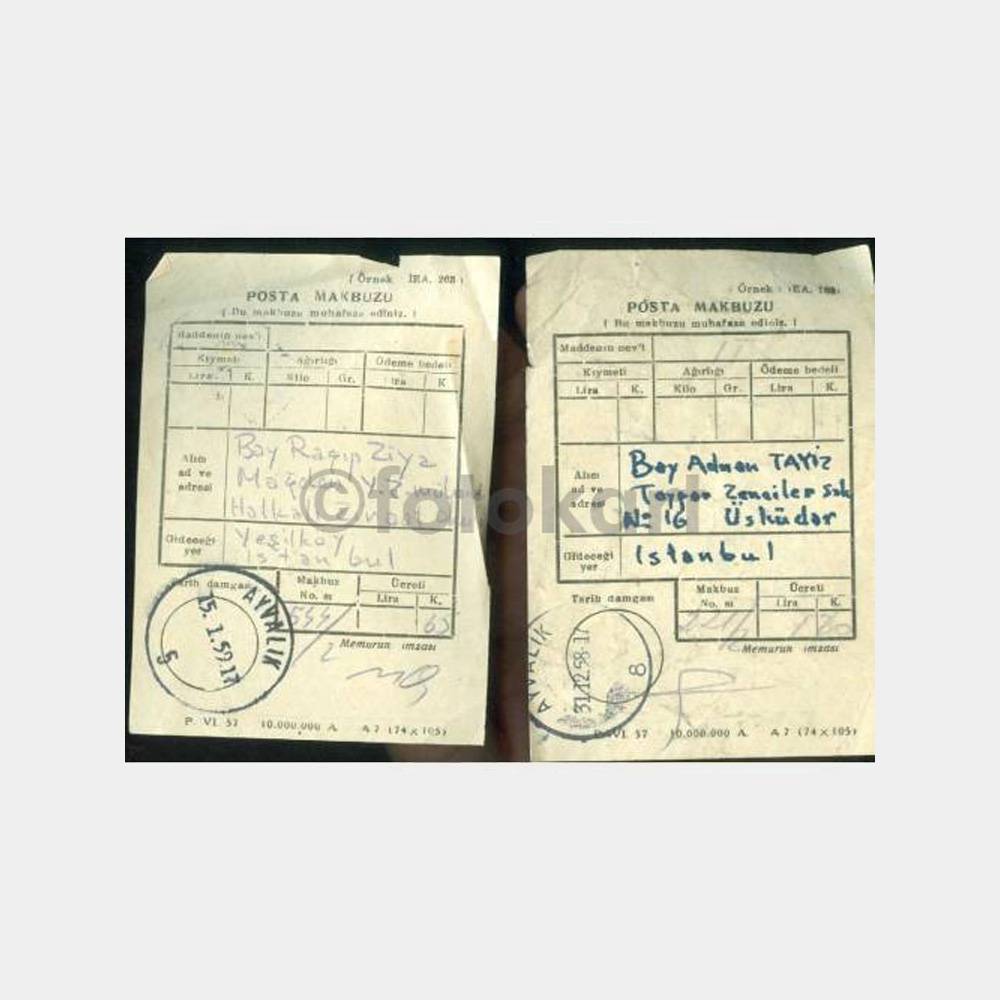 ( Örnek İEA. 263 )
POSTA MAKBUZU
( Bu makbuzu muhafaza ediniz. )
Maddenin nev'i
Kıymeti Ağırlığı Ödeme bedeli
Lira K. Kilo Gr. Lira K
Alıcı
ad ve
adresi
Bay Ragıp Ziya
Halkalı
Gideceği
yer
Yeşilköy
İstanbul
Tarih damgası
Makbuz
No. sı
Ücreti
Lira K.
AYVALIK
15.1.59.17
5
Memurun imzası
P. VI. 57 10.000.000 A. A 7 (74 x 105)
Örnek : İEA.
POSTA MAKBUZU
( Bu makbuzu muhafaza ediniz. )
Maddenin nev'i
Kıymeti Ağırlığı Ödeme bedeli
Lira K. Kilo Gr. Lira K.
Alıcı
ad ve
adresi
Bay Adnan TAYİZ
Sok
No 16 Üsküdar
Gideceği
yer
İstanbul
Tarih damgası
Makbuz
No. sı
Ücreti
Lira K.
AYVALIK
31.12.58-17
8
Memurun imzası
P. VI. 57 10.000.000 A. A 7 (74 x 105)
©fotokart